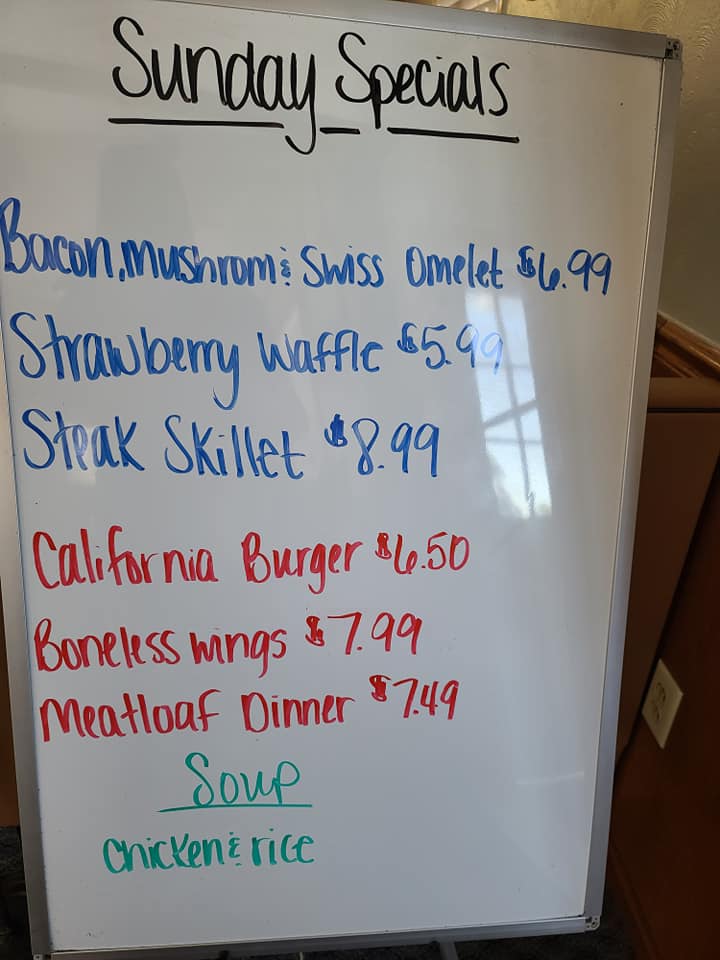 Sunday Specials
Bacon, mushrom & Swiss Omelet $6.99
Strawberry Waffle $5.99
Steak Skillet $8.99
California Burger $6.50
Boneless wings $7.99
Meatloaf Dinner $7.49
Soup
Chicken & rice